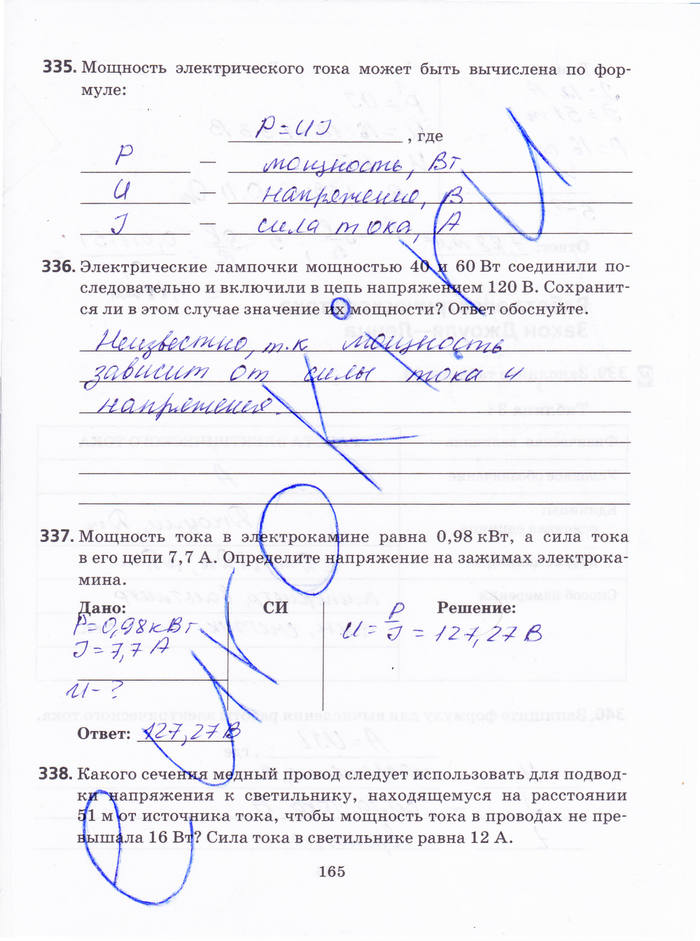 335. Мощность электрического тока может быть вычислена по фор-
муле:
P=UI , где
P — мощность, Вт
U — напряжение, В
I — сила тока, А
336. Электрические лампочки мощностью 40 и 60 Вт соединили по-
следовательно и включили в цепь напряжением 120 В. Сохранит-
ся ли в этом случае значение их мощности? Ответ обоснуйте.
Неизвестно, т.к мощность
зависит от силы тока и
напряжения.
337. Мощность тока в электрокамине равна 0,98 кВт, а сила тока
в его цепи 7,7 А. Определите напряжение на зажимах электрока-
мина.
Дано: СИ Решение:
P=0,98кВт U=P/I=127,27В
I=7,7 А
U-?
Ответ: 127,27В
338. Какого сечения медный провод следует использовать для подвод-
ки напряжения к светильнику, находящемуся на расстоянии
51 м от источника тока, чтобы мощность тока в проводах не пре-
вышала 16 Вт? Сила тока в светильнике равна 12 А.
165